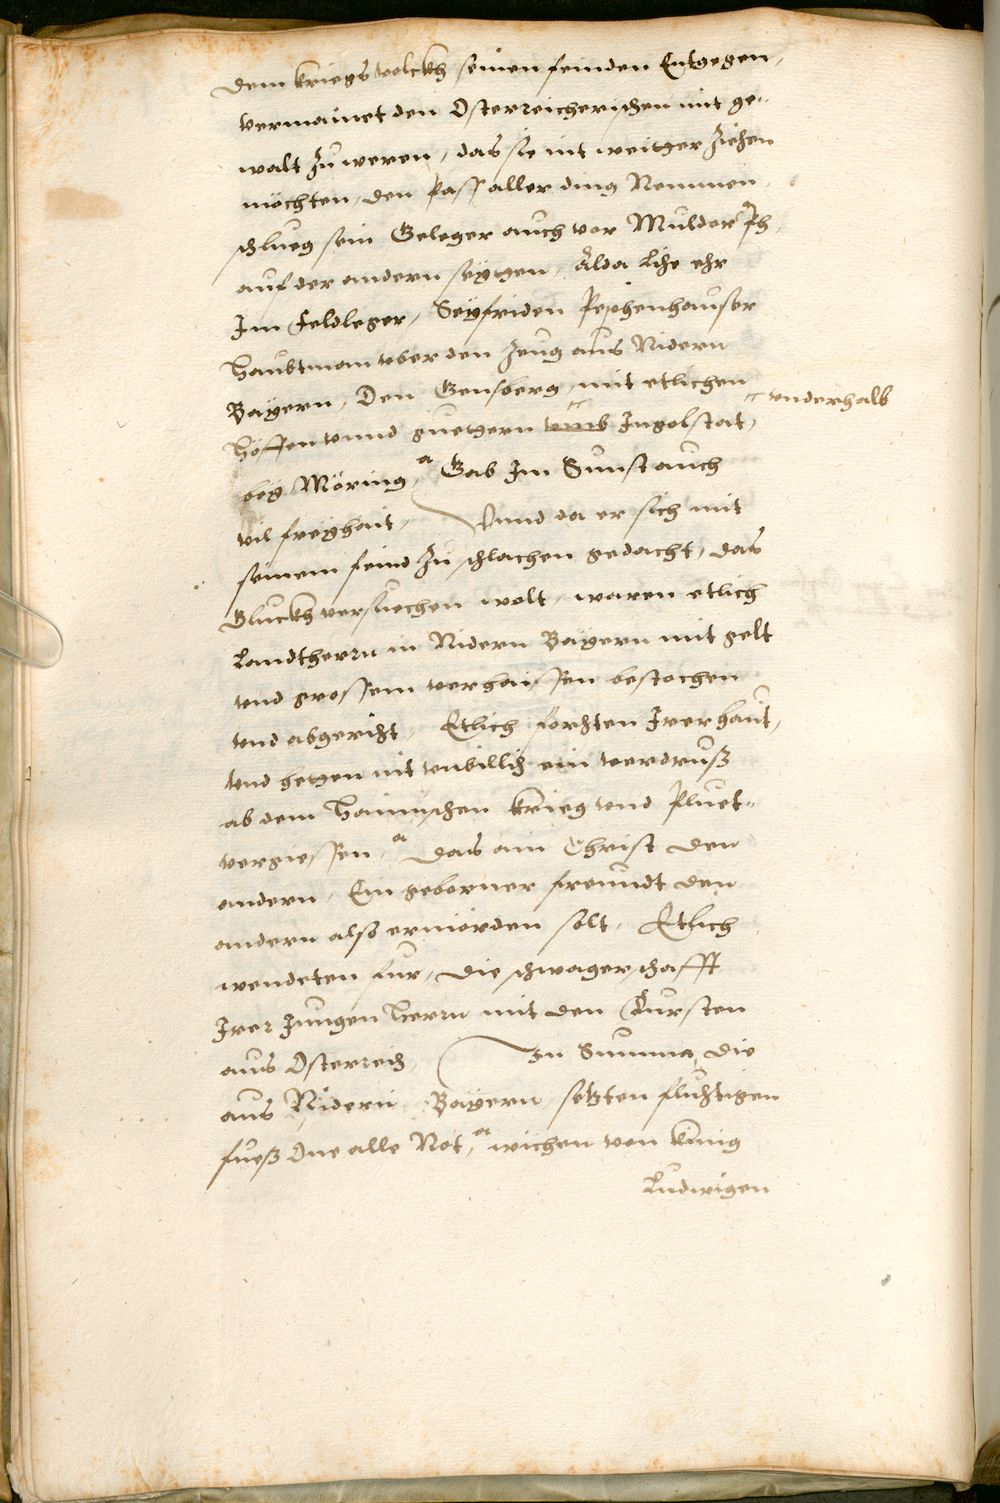 dem kriegsvolckh seinen feinden Entgegen,
vermainet den Osterreicherischen mit ge-
walt zu weren, das sie nit weitger ziehen
möchten, den Pass aller ding Nemmen
schlueg sein Geleger auch vor Muldorff
auf der andern seytgen, Alda lihe ehr
Im Feldleger, Seyfriden
haubtman vber den zeug aus Nidern
Bayern, Den Gensberg mit etlichen
höffen vnnd guetgern vmb Ingolstat, vnderhalb
bey Möring, Gab Im Sunst auch
vil freyhait, Vnnd da er sich mit
seinem feind zu schlachen gedacht, das
Gluckh versuechen wolt, waren etlich
Landtherrn in Nidern Bayern mit gelt
vnd grossem verhaissen bestochen
vnd abgericht, Etlich forchten Irer haut,
vnd hetgen nit vnbillich ein verdruß
ab dem haimischen krieg vnd Pluet-
vergiessen, das ain Christ den
andern, Ein geborner freundt den
andern also ermörden solt, Etlich
wendeten fur, die schwagerschafft
Irer Jungen herrn mit den Fursten
aus Osterreich, In Summa die
aus Nidern Bayern setzten fluchtigen
fueß One alle Not, wichen von kunig
Ludwigen